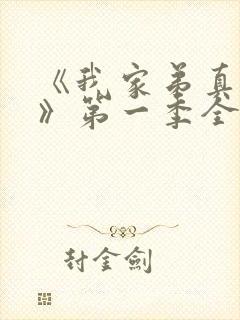 《我家弟真
》第一季全
封金劍